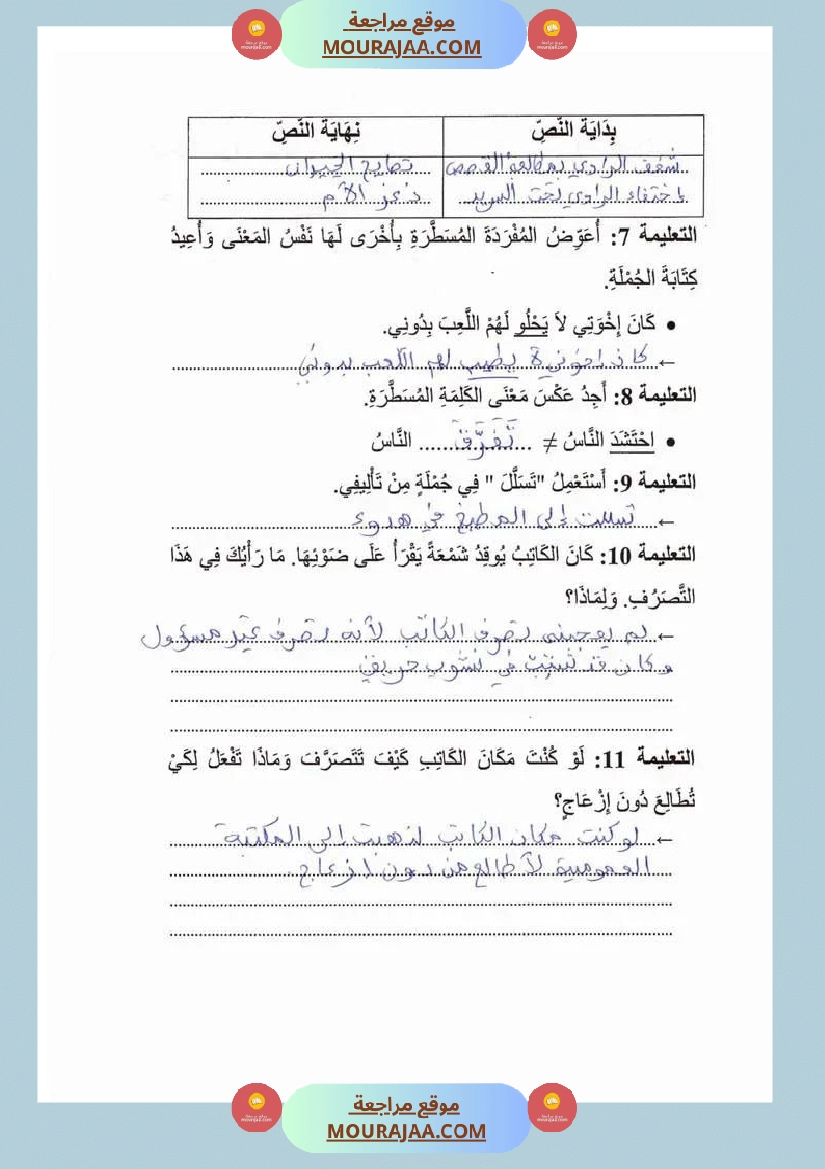 موقع مراجعة
MOURAJAA.COM
بِدَايَة النَّصِّ
نِهَايَة النَّصِّ
شغف الراوي بمطالعة القصص
تصايح الجيران
اختفاء الراوي تحت السرير
ذعر الأم
التعليمة 7: أُعَوِّضُ المُفْرَدَةَ المُسَطَّرَةِ بِأُخْرَى لَهَا نَفْسُ المَعْنَى وَأُعِيدُ
كِتَابَةَ الجُمْلَةِ.
• كَانَ إِخْوَتِي لاَ يَحْلُو لَهُمْ اللَّعِبَ بِدُونِي.
← كان إخوتي لا يطيب لهم اللعب بدوني
التعليمة 8: أَجِدُ عَكْسَ مَعْنَى الكَلِمَةِ المُسَطَّرَةِ.
• اِحْتَشَدَ النَّاسُ ≠ ... تَفَرَّقَ ...... النَّاسُ
التعليمة 9: أَسْتَعْمِلُ "تَسَلَّلَ " فِي جُمْلَةٍ مِنْ تَأْلِيفِي.
← تسللت إلى المطبخ في هدوء
التعليمة 10: كَانَ الكَاتِبُ يُوقِدُ شَمْعَةً يَقْرَأُ عَلَى ضَوْئِهَا. مَا رَأْيُكَ فِي هَذَا
التَّصَرُفِ. وَلِمَاذَا؟
← لم يعجبني تصرف الكاتب لأنه تصرف غير مسؤول
وكان قد تسبب في نشوب حريق
التعليمة 11: لَوْ كُنْتَ مَكَانَ الكَاتِبِ كَيْفَ تَتَصَرَّفَ وَمَاذَا تَفْعَلُ لِكَيْ
تُطَالِعَ دُونَ إِزْعَاجٍ؟
← لو كنت مكان الكاتب لذهبت إلى المكتبة
العمومية لأطالع من دون إزعاج.
موقع مراجعة
MOURAJAA.COM